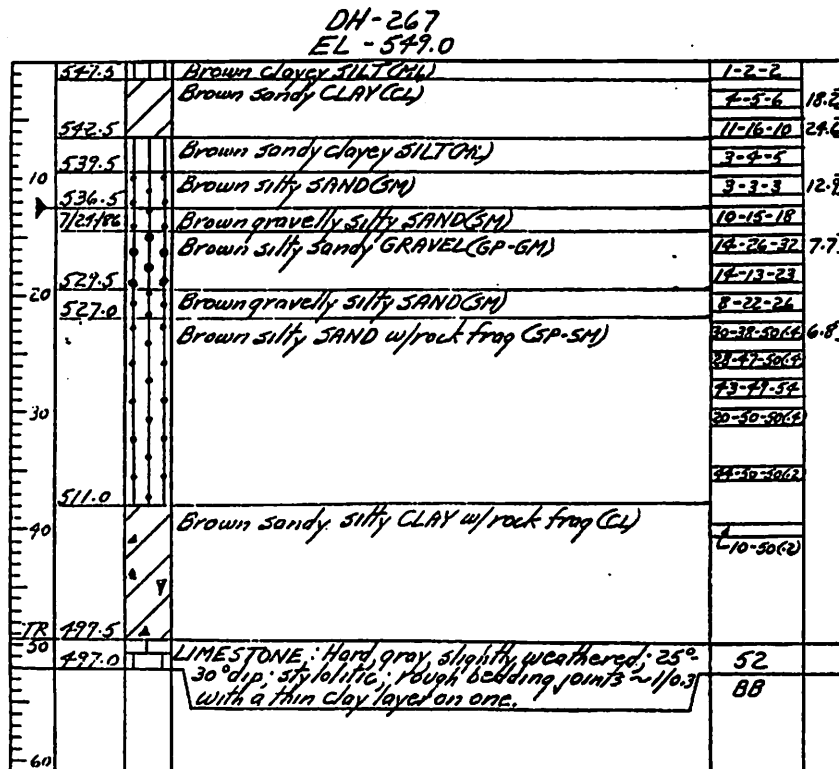 DH-267
EL - 549.0
547.5 Brown clayey SILT(ML) 1-2-2
Brown sandy CLAY(CL) 4-5-6 18.2
542.5 11-16-10 24.6
Brown sandy clayey SILT(ML) 3-4-5
539.5
10 Brown silty SAND(SM) 3-3-3 12.9
536.5
7/29/86 Brown gravelly silty SAND(SM) 10-15-18
Brown silty sandy GRAVEL(GP-GM) 14-26-32 7.7
529.5 14-13-23
20 Brown gravelly silty SAND(SM) 8-22-26
527.0
Brown silty SAND w/rock frag (SP-SM) 30-38-50(.4) 6.8
28-47-50(.4)
43-49-54
30 20-50-50(.4)
44-50-50(.2)
511.0
40 Brown sandy silty CLAY w/rock frag (CL)
10-50(.2)
TR 497.5
50 LIMESTONE: Hard, gray, slightly weathered; 25°- 52
497.0 30° dip; stylolitic; rough bedding joints ~1/0.3 BB
with a thin clay layer on one.
60